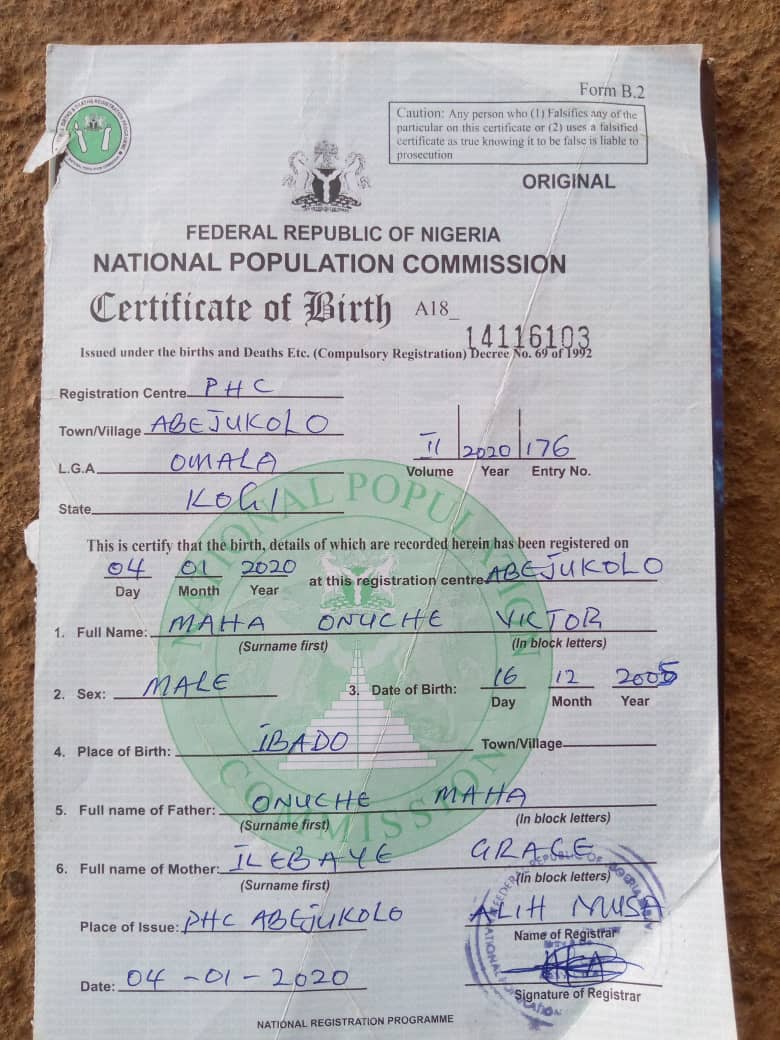 Form B.2
Caution: Any person who (1) Falsifies any of the
particular on this certificate or (2) uses a falsified
certificate as true knowing it to be false is liable to
prosecution
ORIGINAL
FEDERAL REPUBLIC OF NIGERIA
NATIONAL POPULATION COMMISSION
Certificate of Birth A18_ 14116103
Issued under the births and Deaths Etc. (Compulsory Registration) Decree No. 69 of 1992
Registration Centre PHC
Town/Village ABEJUKOLO
II 2020 176
L.G.A. OMALA
Volume Year Entry No.
State KOGI
NATIONAL POPULATION COMMISSION
This is certify that the birth, details of which are recorded herein has been registered on
04 01 2020 at this registration centre ABEJUKOLO
Day Month Year
1. Full Name: MAHA ONUCHE VICTOR
(Surname first) (In block letters)
2. Sex: MALE 3. Date of Birth: 16 12 2005
Day Month Year
4. Place of Birth: IBADO Town/Village
5. Full name of Father: ONUCHE MAHA
(Surname first) (In block letters)
6. Full name of Mother: ILEBAYE GRACE
(Surname first) (In block letters)
Place of Issue: PHC ABEJUKOLO ALIH MUSA
Name of Registrar
Date: 04-01-2020
Signature of Registrar
NATIONAL REGISTRATION PROGRAMME